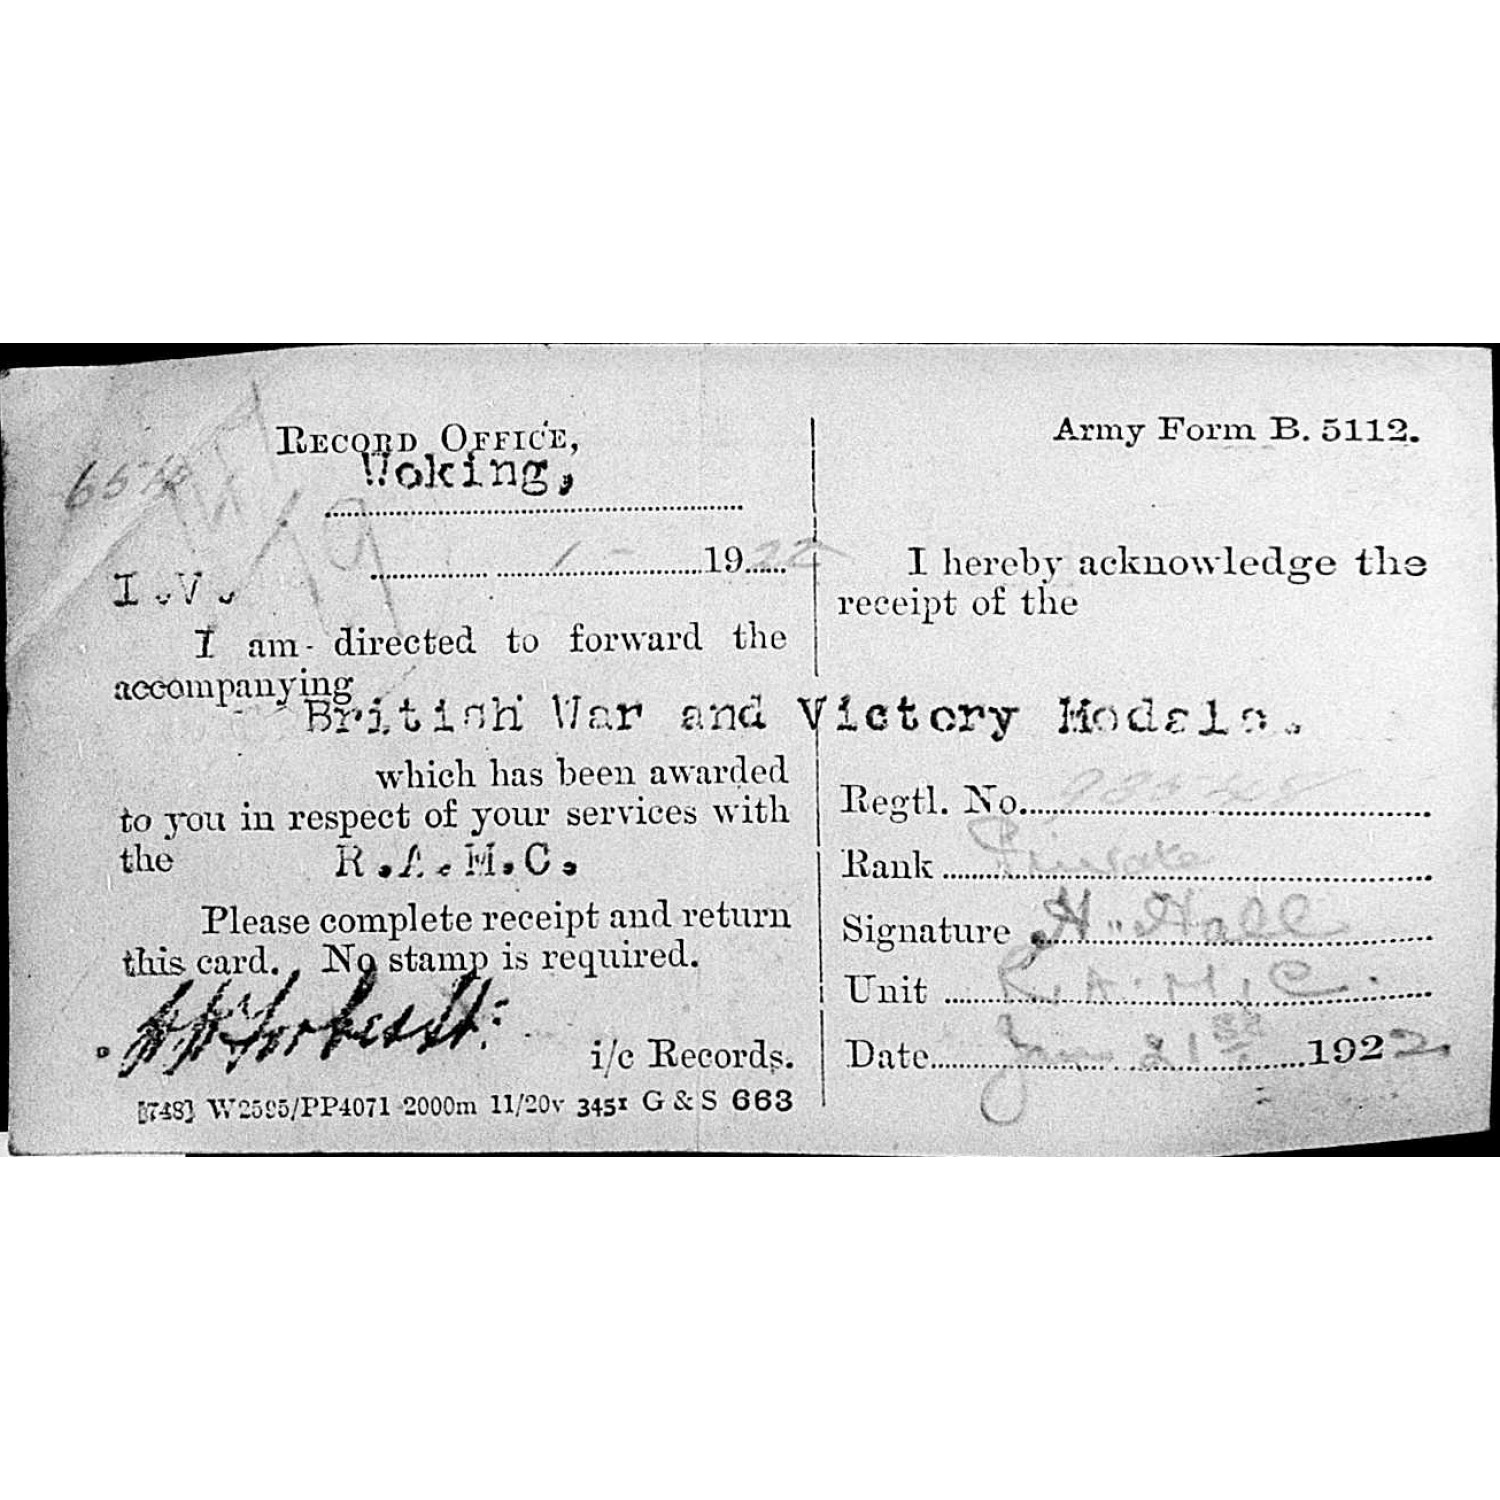 Army Form B. 5112.
RECORD OFFICE,
Woking,
19 22
I.V.
I am directed to forward the
accompanying
British War and Victory Medals.
which has been awarded
to you in respect of your services with
the R.A.M.C.
Please complete receipt and return
this card. No stamp is required.
i/c Records.
[748] W2595/PP4071 2000m 11/20v 3451 G & S 663
I hereby acknowledge the
receipt of the
Regtl. No.
Rank Private
Signature H. Hall
Unit R.A.M.C.
Date Jan 21st 1922